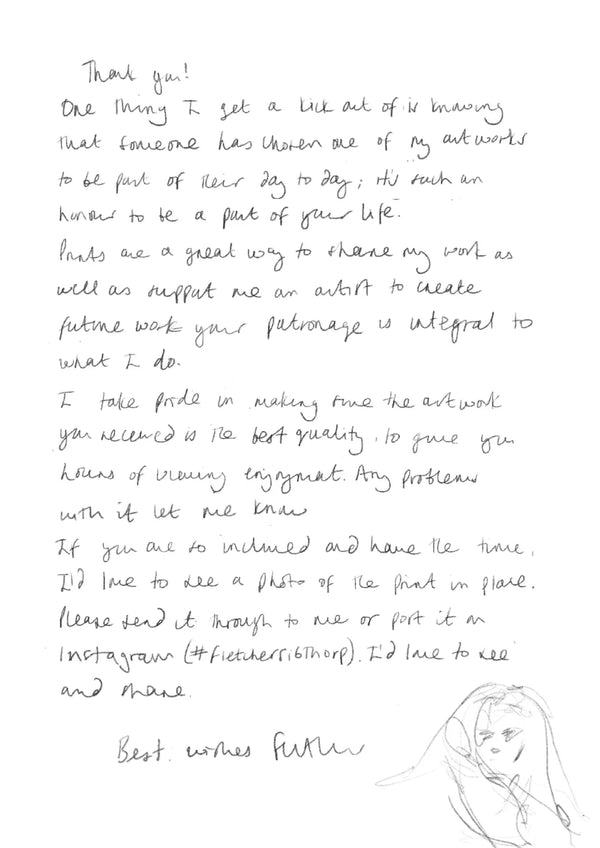 Thank you!
One thing I get a kick out of is knowing
that someone has chosen one of my artworks
to be part of their day to day; it's such an
honour to be a part of your life.
Prints are a great way to share my work as
well as support me an artist to create
future work your patronage is integral to
what I do.
I take pride in making sure the artwork
you received is the best quality, to give you
hours of viewing enjoyment. Any problems
with it let me know
If you are so inclined and have the time,
I'd love to see a photo of the print in place.
Please send it through to me or post it on
Instagram (#fletchersibthorp). I'd love to see
and share.
Best wishes